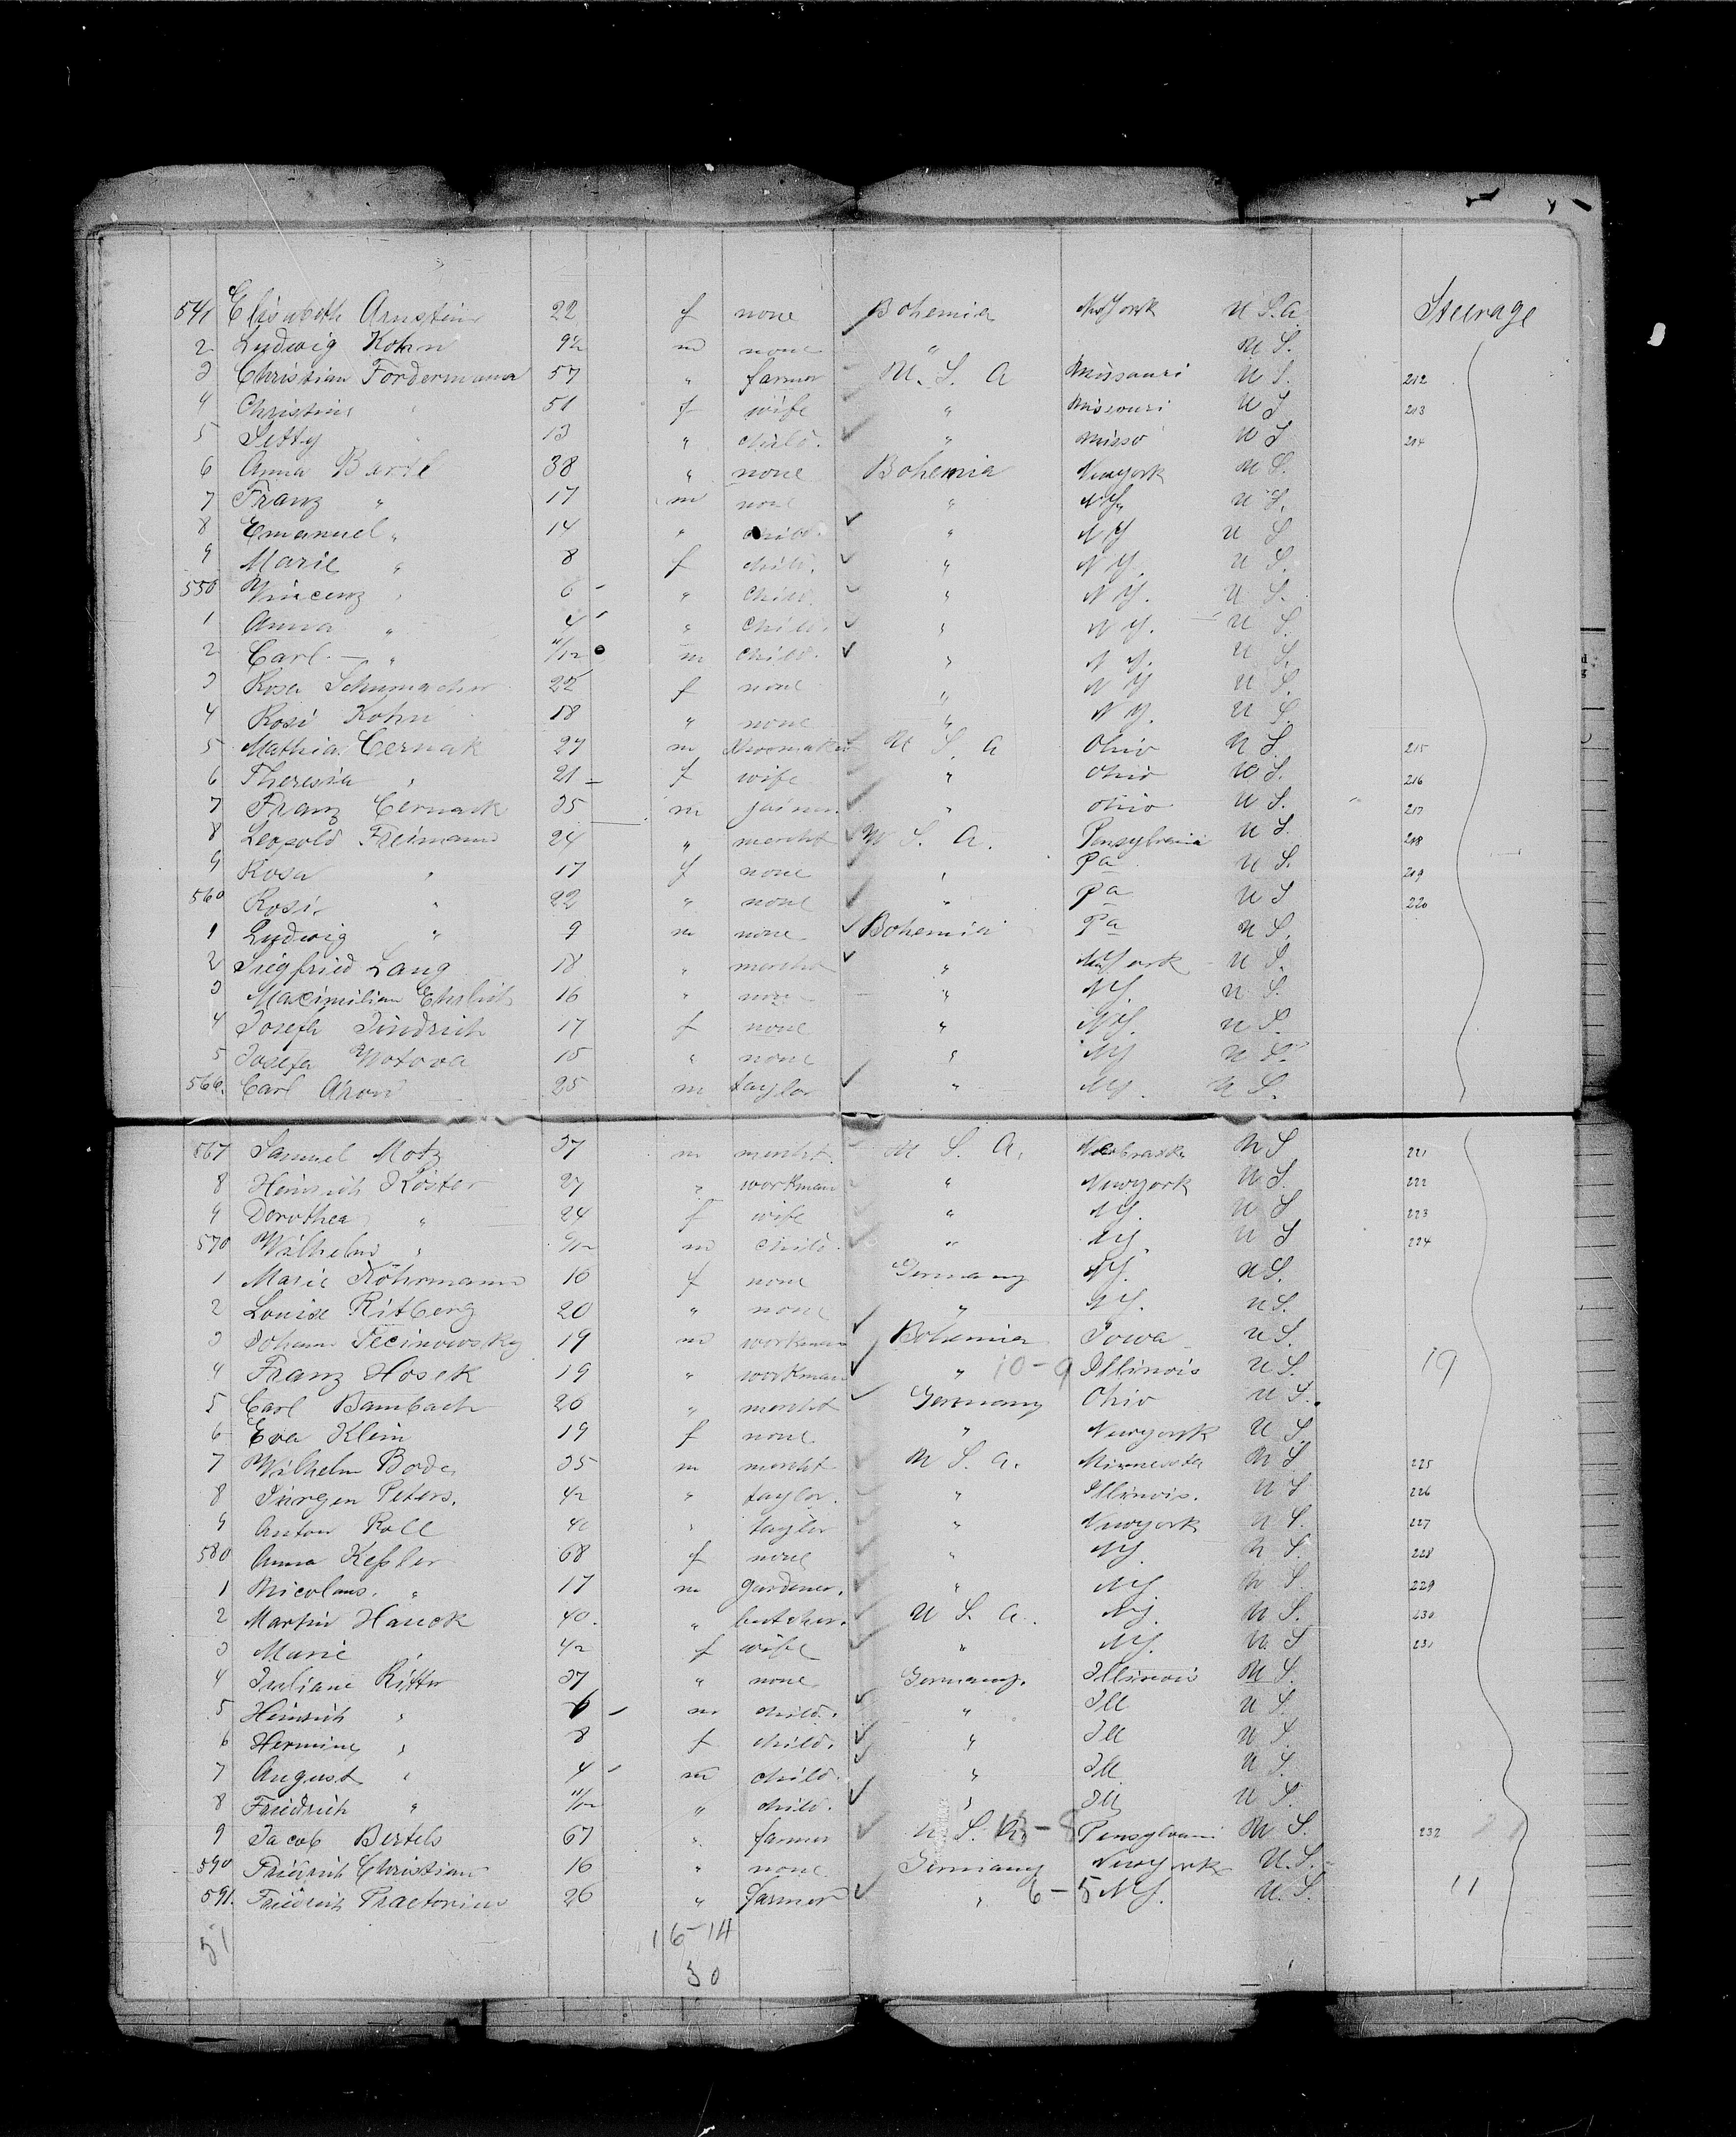 541 Elisabeth Arnstein 22 f none Bohemia NewYork U S.a Steerage
2 Ludwig Kohn 92 m none " U S.
3 Christian Fordermann 57 " farmer U. S. A Missouri U S. 212
4 Christine " 51 f wife " Missouri U S 213
5 Setty " 13 " child. " Misso U S 214
6 Anna Bertl 38 " none Bohemia Newyork U S.
7 Franz " 17 m none " NY. U S.
8 Emanuel " 14 " child. " N Y U S
9 Marie " 8 f child. " N Y. U S.
550 Vincenz " 6 " child. " N Y. U S.
1 Anna " 4 " child. " N Y. U S.
2 Carl — " 11/12 m child. " N Y. U S.
3 Rosa Schumacher 22 f none " N Y U S.
4 Rosi Kohn 18 " none " N Y. U S.
5 Mathia Cernak 27 m U S a Ohio U S. 215
6 Theresia " 21 f wife " Ohio U S. 216
7 Franz Cernack 35 m joiner. " Ohio U S. 217
8 Leopold Freimann 24 " mercht U S. A. Pensylvania U S. 218
9 Rosa " 17 f none " Pa U S. 219
560 Rosi " 22 " none " Pa U S 220
1 Ludwig " 9 m none Bohemia Pa U S.
2 Siegfried Lang 18 " mercht " NewYork U S.
3 Maximilian Ehrlich 16 " none " NY. U S.
4 Josefa Jindrich 17 f none " NY. U S.
5 Josefa Wotova 15 " none " NY U S.
566. Carl Aron 25 m taylor " NY. U S.
567 Samuel Motz 37 m mercht. U S. A. Nebraska U S 221
8 Heinrich Köster 27 " workman " Newyork U S. 222
9 Dorothea " 24 f wife " NY. U S 223
570 Wilhelm " m child. " NY. U S 224
1 Marie Köhrmann 16 f none Germany NY. U S.
2 Louise Ritberg 20 " none " NY. U S.
3 Johann Tecinowsky 19 m workman Bohemia Iowa U S.
4 Franz Hosek 19 " workman " 10-9 Illinois U S. 19
5 Carl Bambach 26 " mercht Germany Ohio U S.
6 Eva Klein 19 f none " Newyork U S.
7 Wilhelm Bode 35 m mercht U S. a. Minnesota U S 225
8 Jürgen Peters. 42 " taylor. " Illinois. U S 226
9 Anton Roll 40 " taylor " Newyork U S. 227
580 Anna Keßler 68 f none " NY. U S. 228
1 Nicolaus " 17 m gardener. " NY U S. 229
2 Martin Hauck 40. " butcher. U S. a. NY. U S. 230
3 Marie " 42 f wife " NY. U S 231
4 Juliane Ritter 37 " none Germany. Illinois U S.
5 Heinrich " 6 m child. " Ill U S.
6 Hermine " 8 f child. " Ill U S.
7 August " 4 m child. " Ill U S.
8 Friedrich " 11/12 " child. " Ill U S.
9 Jacob Bertels 67 " farmer U. S. 13-8 Pensylvani U S. 232
590 Friedrich Christian 16 " none Germany NewYork U. S.
591. Friedrich Praetorius 26 " farmer " 6-5 NY. U. S. 11
51 16-14
30